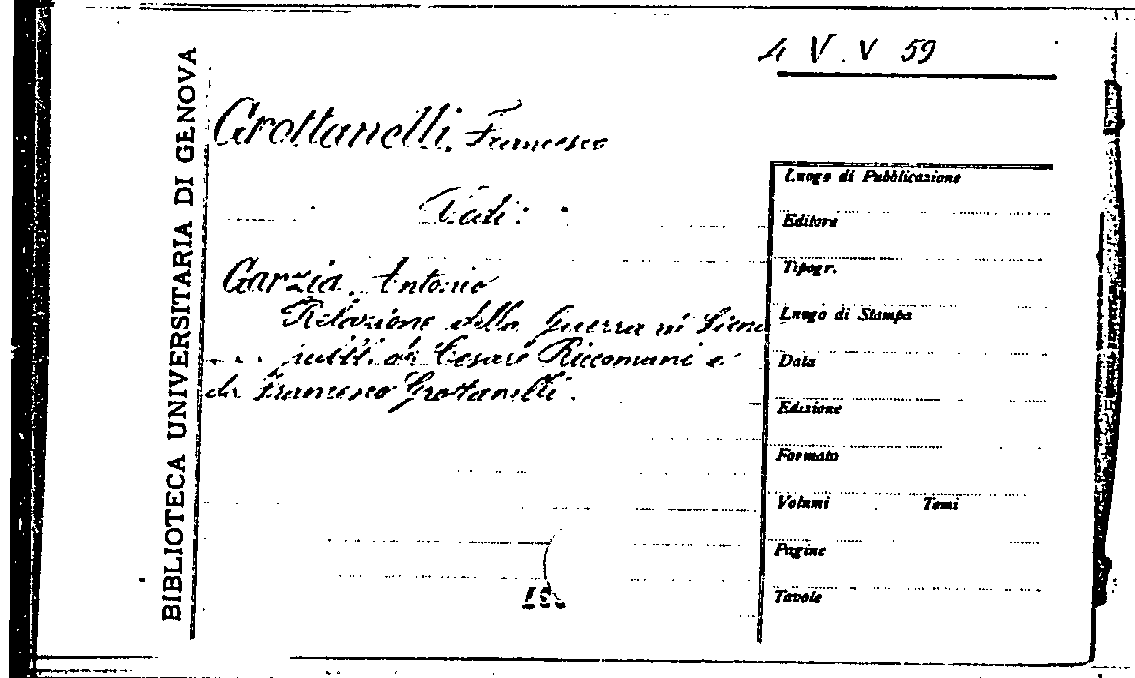 4 V. V 59
BIBLIOTECA UNIVERSITARIA DI GENOVA
Grottanelli, Francesco
Vedi:
Garzia, Antonio
Relazione della Guerra di Siena
... pubbl. da Cesare Riccomani e
da Francesco Grottanelli.
Luogo di Pubblicazione
Editore
Tipogr.
Luogo di Stampa
Data
Edizione
Formato
Volumi Tomi
Pagine
Tavole